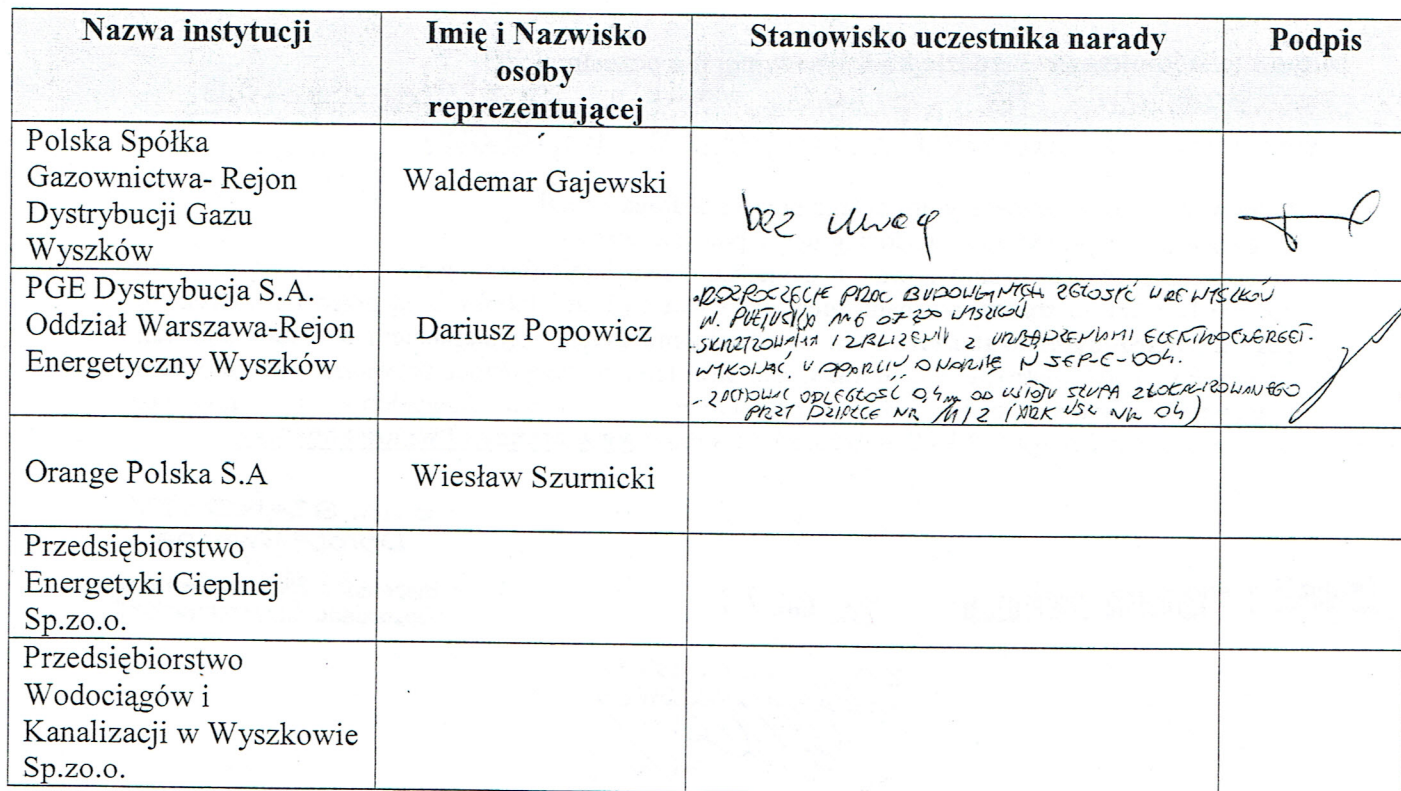 Nazwa instytucji
Imię i Nazwisko
osoby
reprezentującej
Stanowisko uczestnika narady
Podpis
Polska Spółka
Gazownictwa- Rejon
Dystrybucji Gazu
Wyszków
Waldemar Gajewski
bez uwag
PGE Dystrybucja S.A.
Oddział Warszawa-Rejon
Energetyczny Wyszków
Dariusz Popowicz
- ROZPOCZĘCIE PRAC BUDOWLANYCH ZGŁOSIĆ W RE WYSZKÓW
UL. PUŁTUSKA NR 6 07-200 WYSZKÓW
- SKRZYŻOWANIA I ZBLIŻENIA Z URZĄDZENIAMI ELEKTROENERGET.
WYKONAĆ W OPARCIU O NORMĘ N SEP-E-004.
- ZACHOWAĆ ODLEGŁOŚĆ 0,4m OD SŁUPA ZLOKALIZOWANEGO
PRZY DZIAŁCE NR 11/2 (ARK NR 04)
Orange Polska S.A
Wiesław Szurnicki
Przedsiębiorstwo
Energetyki Cieplnej
Sp.zo.o.
Przedsiębiorstwo
Wodociągów i
Kanalizacji w Wyszkowie
Sp.zo.o.